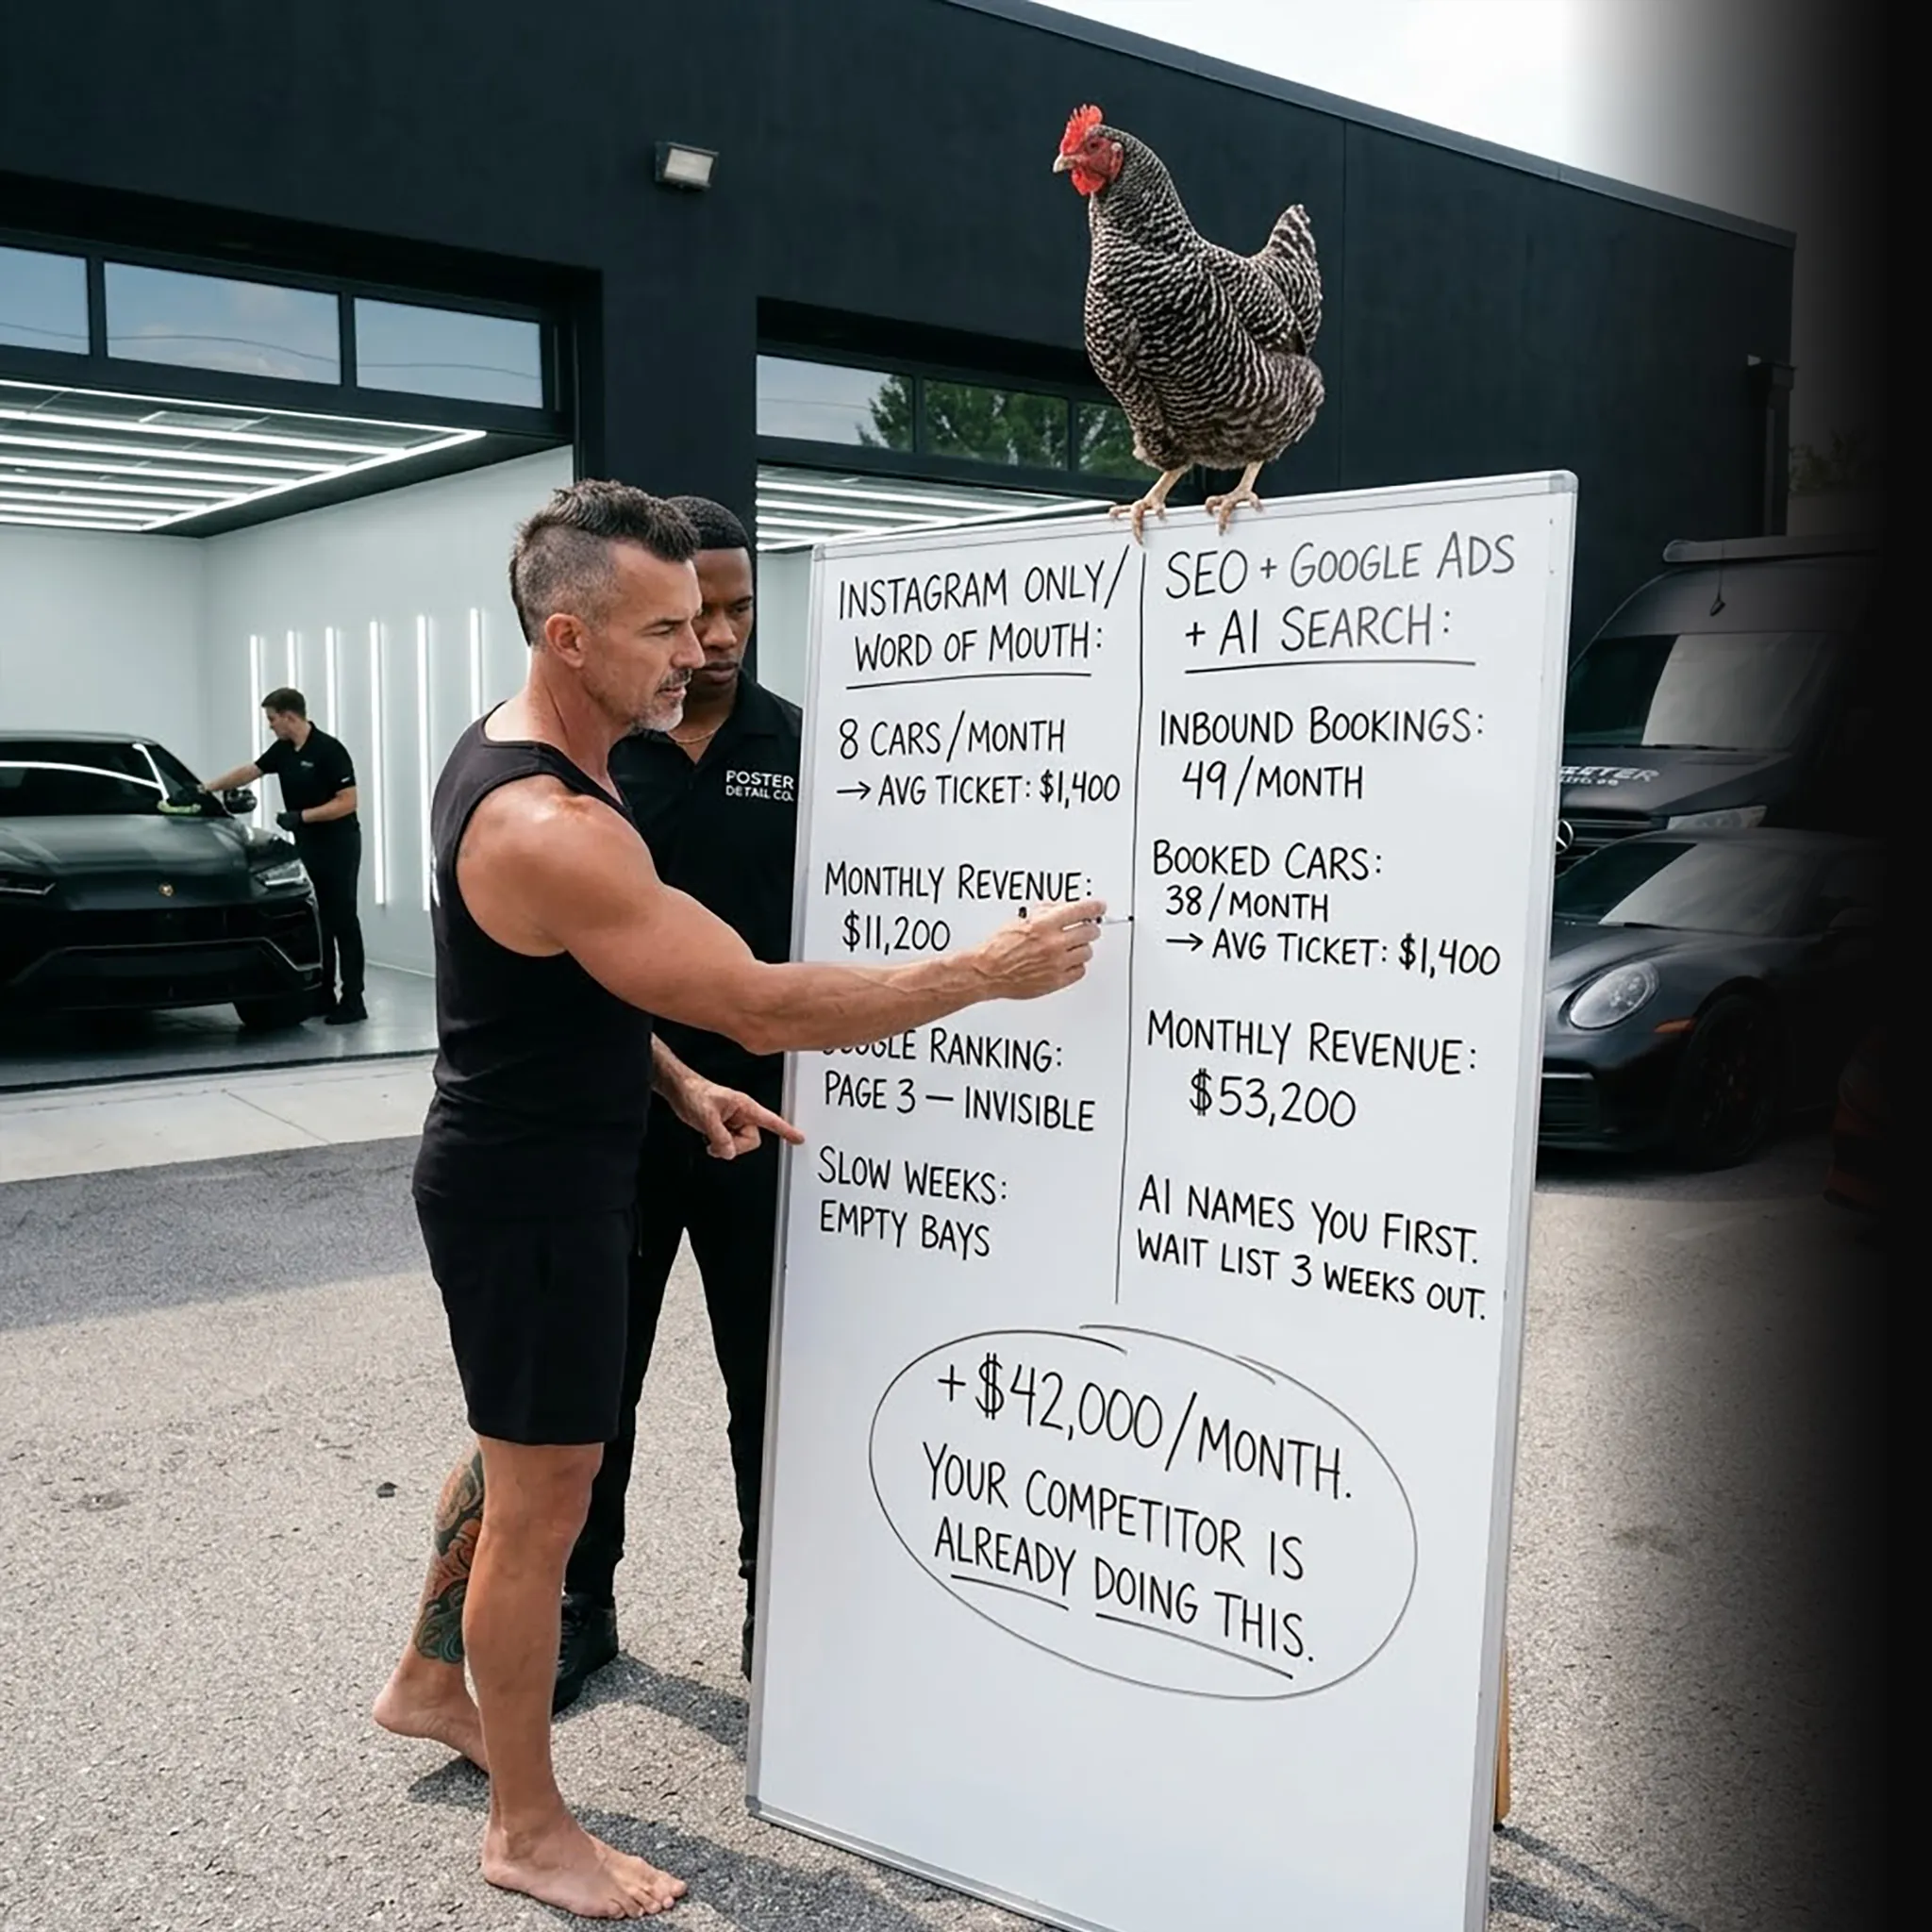 INSTAGRAM ONLY/
WORD OF MOUTH:
8 CARS/MONTH
→ AVG TICKET: $1,400
MONTHLY REVENUE:
$11,200
RANKING:
PAGE 3 — INVISIBLE
SLOW WEEKS:
EMPTY BAYS
SEO + GOOGLE ADS
+ AI SEARCH:
INBOUND BOOKINGS:
49/MONTH
BOOKED CARS:
38/MONTH
→ AVG TICKET: $1,400
MONTHLY REVENUE:
$53,200
AI NAMES YOU FIRST.
WAIT LIST 3 WEEKS OUT.
+$42,000/MONTH.
YOUR COMPETITOR IS
ALREADY DOING THIS.
POSTER
DETAIL CO.